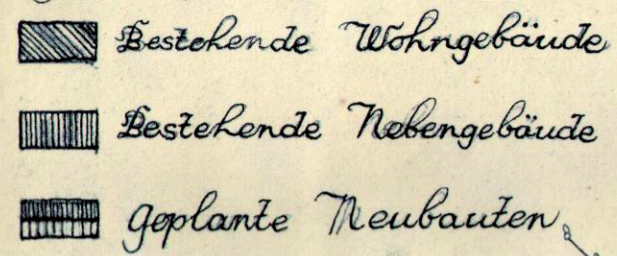 Bestehende Wohngebäude
Bestehende Nebengebäude
geplante Neubauten